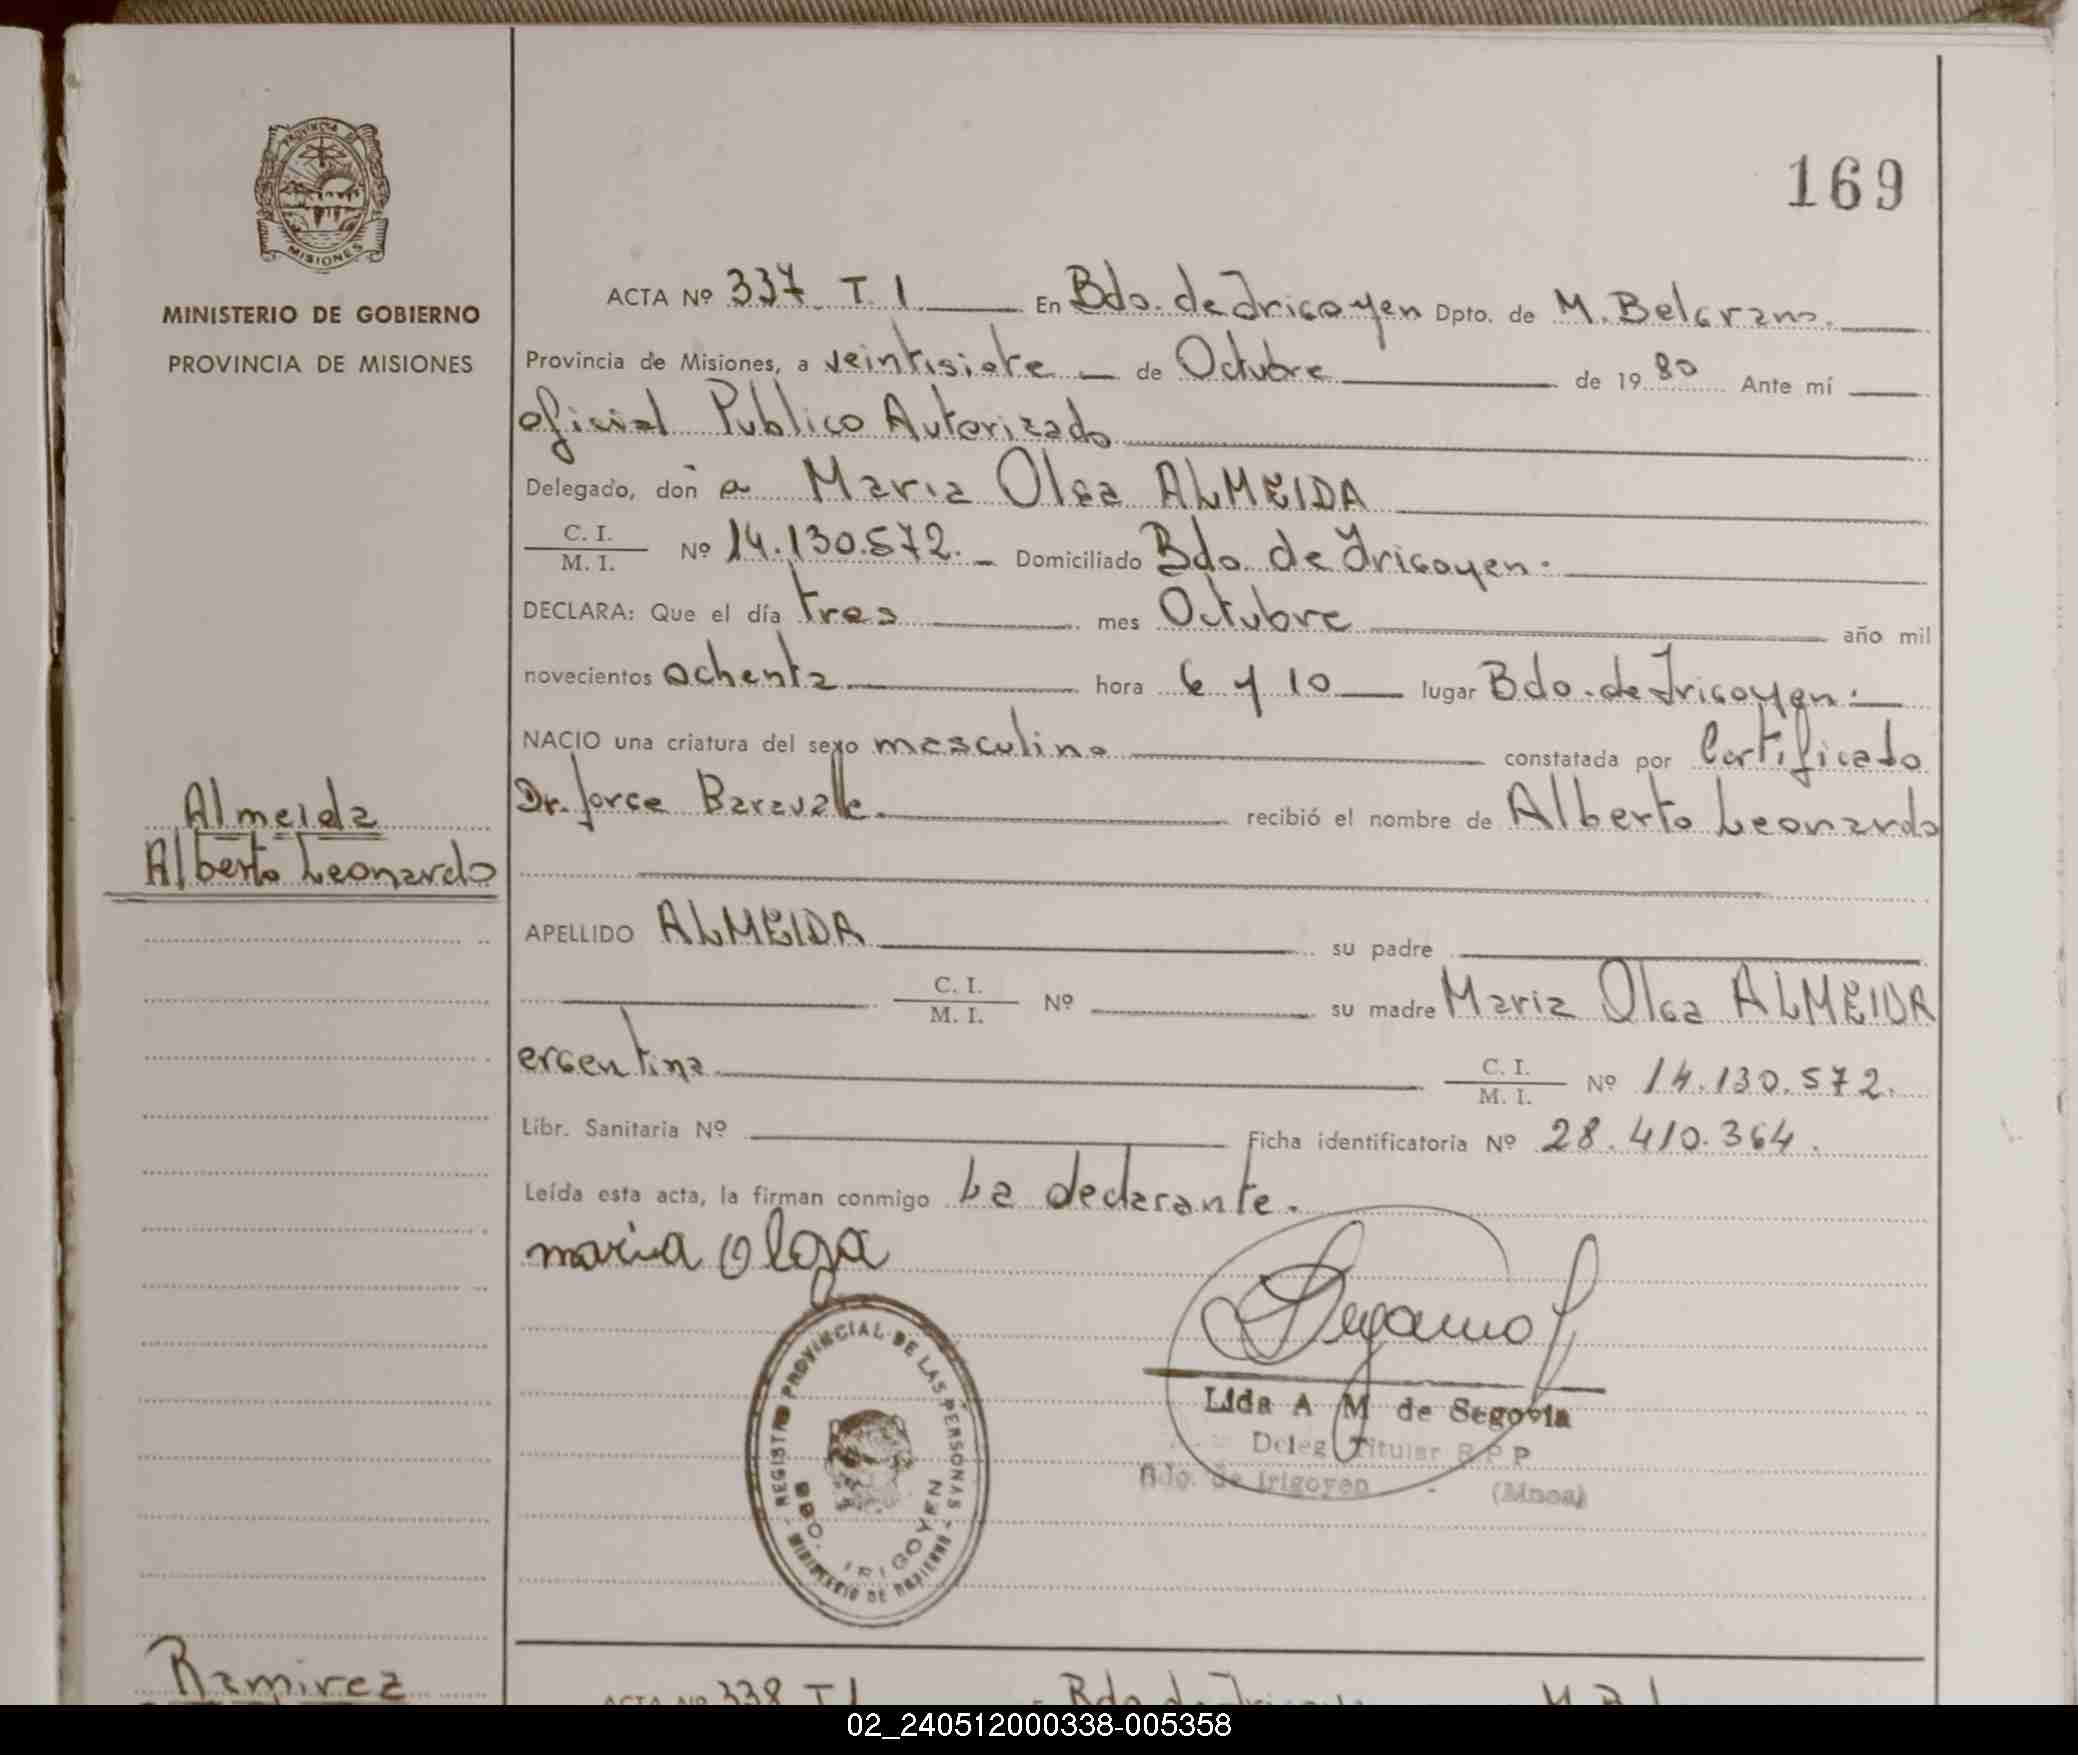 PROVINCIA DE
MISIONES
MINISTERIO DE GOBIERNO
PROVINCIA DE MISIONES
169
ACTA Nº 337 T I En Bdo. de Irigoyen Dpto. de M. Belgrano.
Provincia de Misiones, a veintisiete de Octubre de 1980 Ante mí
oficial Publico Autorizado
Delegado, don a Maria Olga ALMEIDA
C. I.
M. I. Nº 14.130.572. Domiciliado Bdo. de Irigoyen.
DECLARA: Que el día tres mes Octubre año mil
novecientos ochenta hora 6 y 10 lugar Bdo. de Irigoyen.
NACIO una criatura del sexo masculino constatada por Certificado
Dr. Jorge Baravalle. recibió el nombre de Alberto Leonardo
Almeida
Alberto Leonardo
APELLIDO ALMEIDA su padre
C. I.
M. I. Nº su madre Maria Olga ALMEIDA
argentina C. I.
M. I. Nº 14.130.572.
Libr. Sanitaria Nº Ficha identificatoria Nº 28.410.364.
Leída esta acta, la firman conmigo La declarante.
maria Olga
REGISTRO PROVINCIAL DE LAS PERSONAS
BDO. IRIGOYEN
MINISTERIO DE GOBIERNO
Lida A M de Segovia
Deleg Titular R P P
Bdo. de Irigoyen - (Mnes)
Ramirez
ACTA Nº 338 T I
02_240512000338-005358